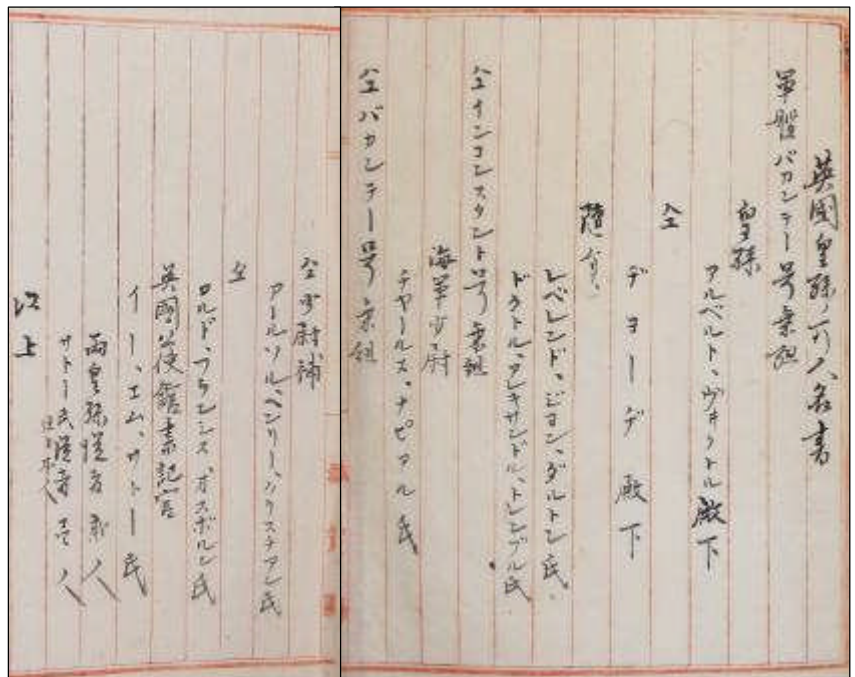 英國皇孫一行人名書
軍艦バカンテー号乗組
皇孫
アルベルト、ヴヰクトル殿下
仝
ヂョーヂ殿下
随員
レベレンド、ジョン、ダルトン氏
ドクトル、アレキサンドル、トレンブル氏
仝インコンスタント号乗組
海軍少尉
チヤールス、ナピアル氏
仝バカンテー号乗組
仝少尉補
アールソル、ヘンリー、クリスチアン氏
仝
ロルド、フランシス オスボルン氏
英國公使館書記官
イー、エム、サトー氏
両皇孫従者 弐人
サトー氏従者 壱人
以上